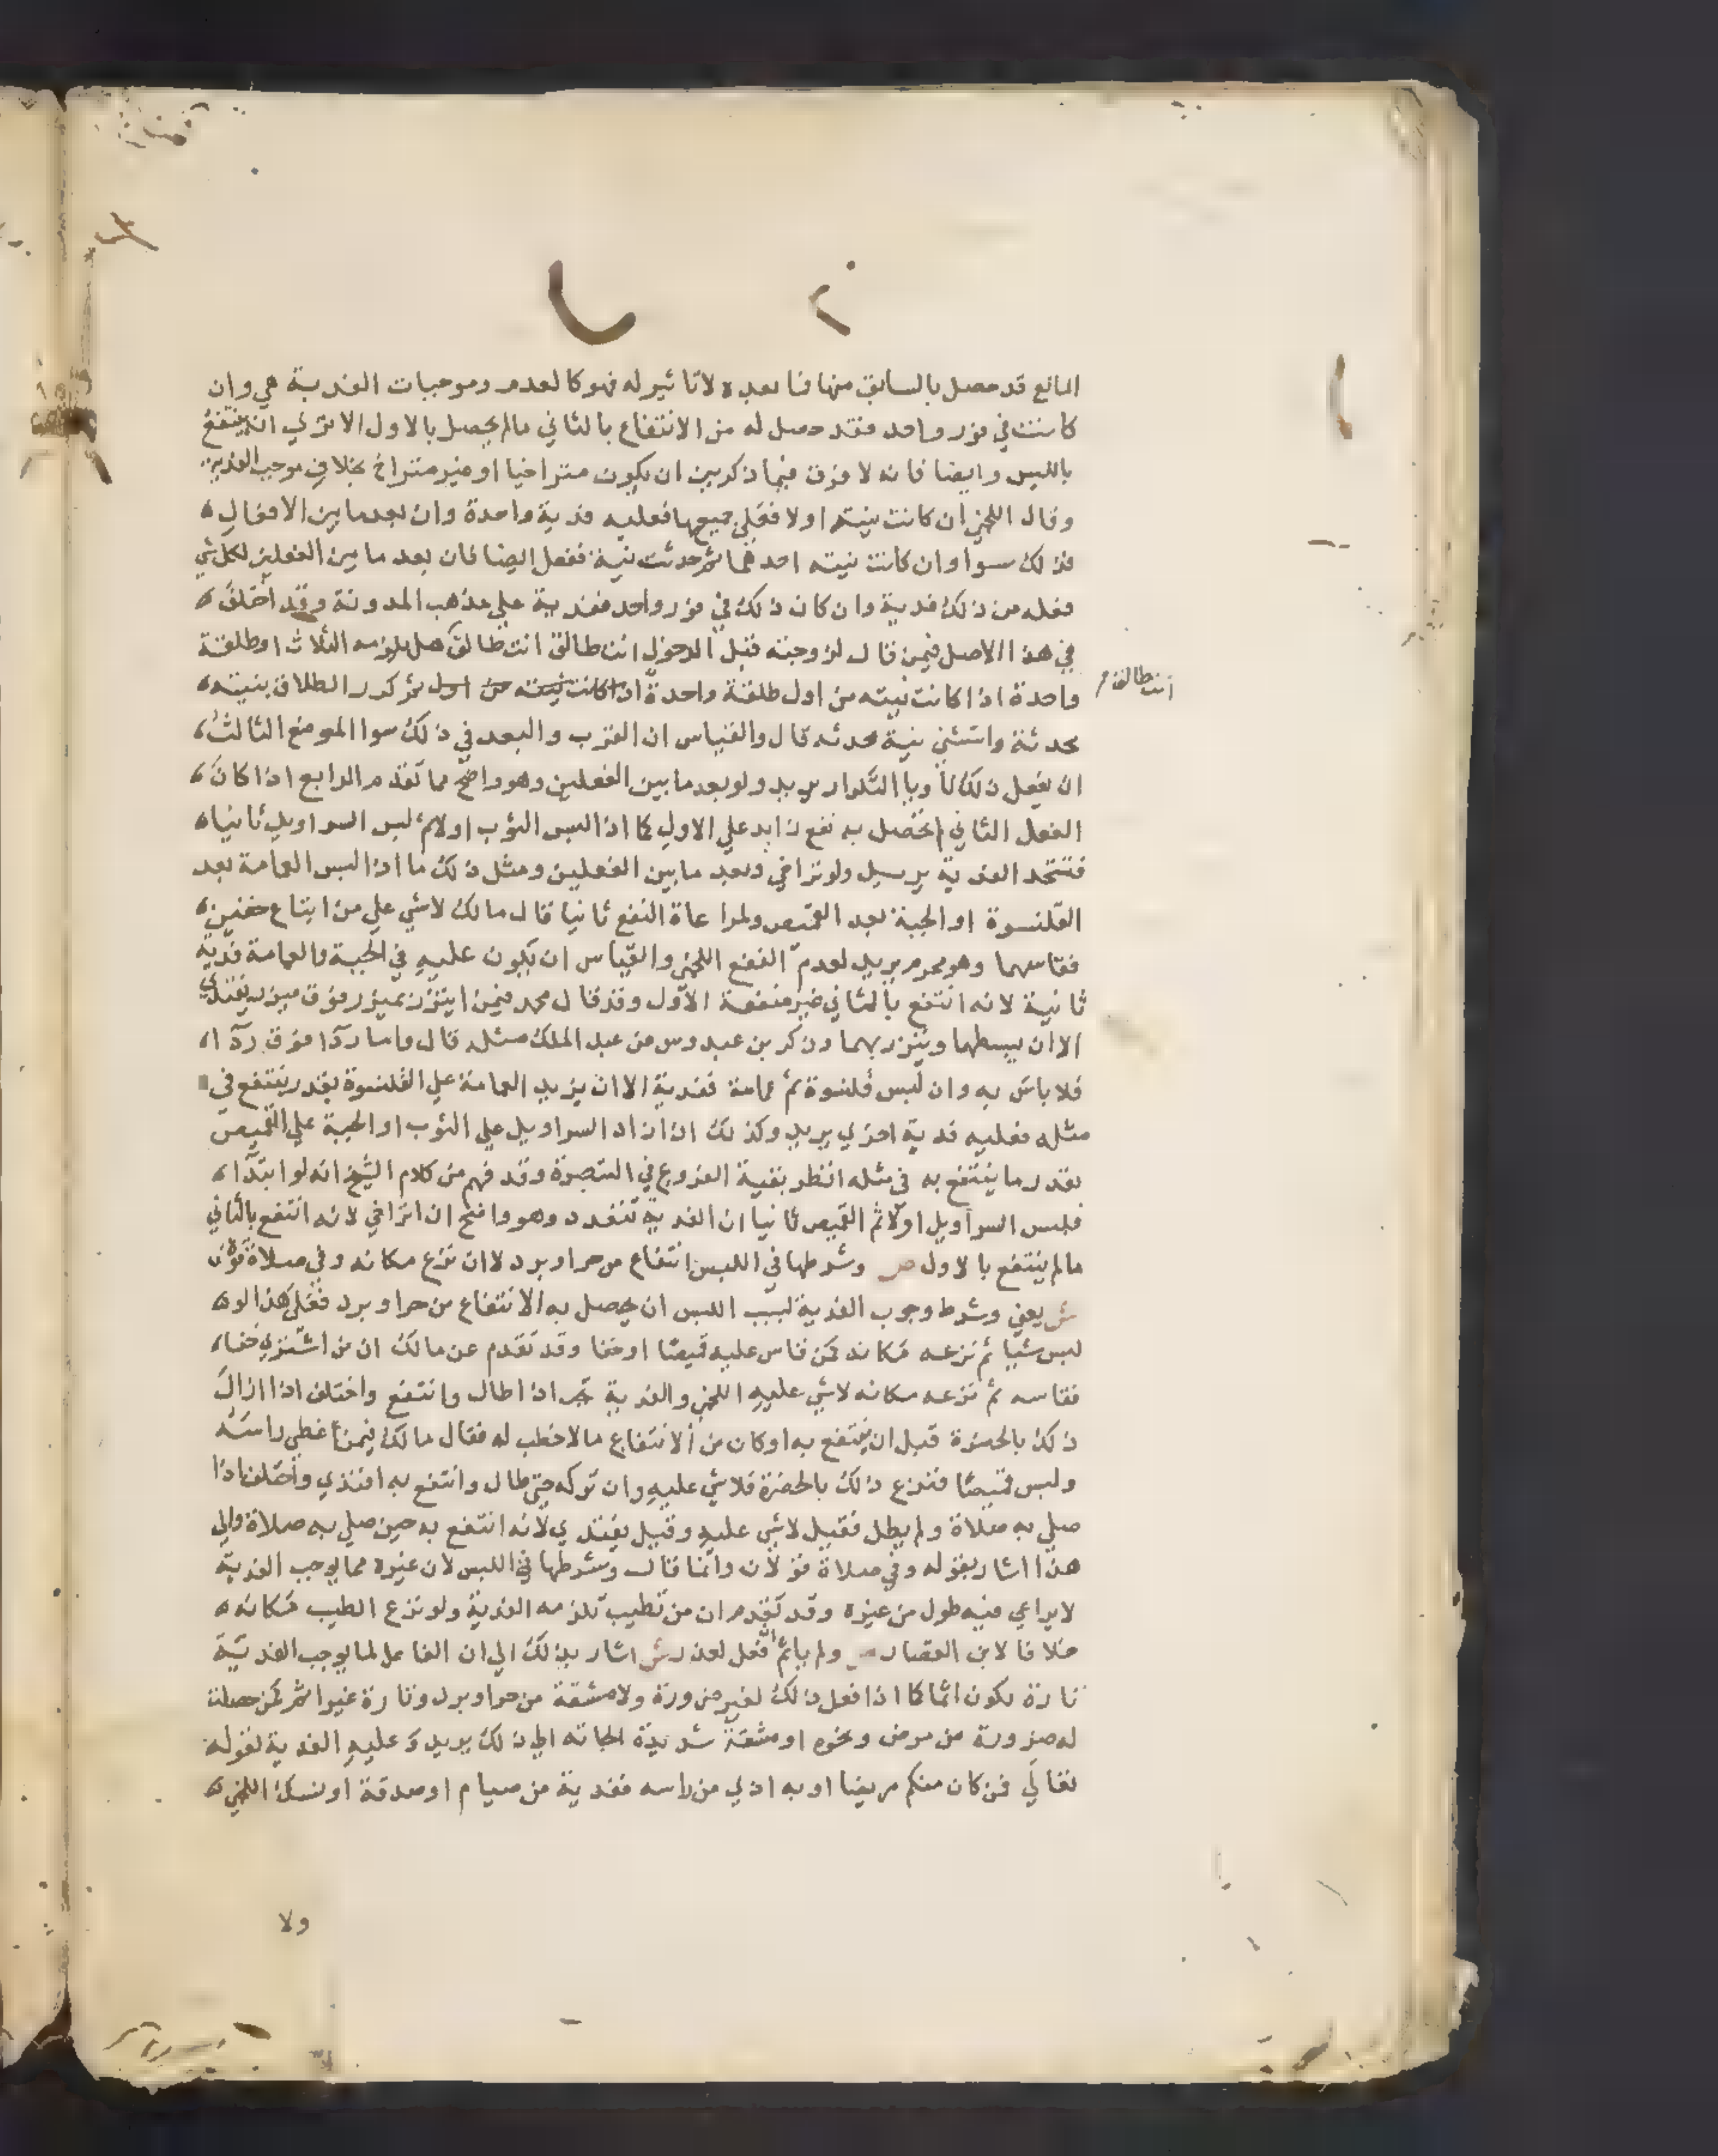 المانع قد حصل بالسابق منها فما بعده لا تاثير له فهو كالعدم وموجبات الفدية هي وان
كانت في فور واحد فقد حصل له من الانتفاع بالثاني مالم يحصل بالاول الا تري انه ينتفع
باللبس وايضا فانه لا فرق فيما ذكر بين ان يكون متراخيا او غير متراخ بخلاف موجب الفدية
وقال اللخمي ان كانت نيته اولا فعلي جميعها فعليه فدية واحدة وان بعد ما بين الافعال
فذلك سوا وان كانت نيته احدهما ثم حدثت نية ففعل ايضا فان بعد ما بين الفعلين لكل شي
فعله من ذلك فدية وان كان ذلك في فور واحد ففدية علي مذهب المدونة وقد اختلف
في هذا الاصل فيمن قال لزوجته قبل الدخول انت طالق انت طالق هل يلزمه الثلاث او طلقة
انت طالق
واحدة اذا كانت نيته من اول طلقة واحدة اذا كانت نيته من اول ثم كرر الطلاق بنيته
محدثة واستثني بنية محدثه قال والقياس ان القرب والبعد في ذلك سوا الموضع الثالث
ان يفعل ذلك ناويا التكرار يريد ولو بعد ما بين الفعلين وهو واضح مما تقدم الرابع اذا كان
الفعل الثاني لم يحصل به نفع زايد علي الاول كما اذا لبس الثوب اولا ثم لبس السراويل ثانيا
فتتحد الفدية يريد ولو تراخي وبعد ما بين الفعلين ومثل ذلك ما اذا لبس العمامة بعد
القلنسوة او الجبة بعد القميص ولمراعاة النفع ثانيا قال مالك لا شي علي من ابتاع خفين
فقاسهما وهو محرم يريد لعدم النفع اللخمي والقياس ان يكون عليه في الجبة والعمامة فدية
ثانية لانه انتفع بالثاني غير منفعة الاول وقد قال محمد فيمن ايتزر بميزر فوق ميزر يفتدي
الا ان يبسطهما ويتزر بهما وذكر بن عبدوس عن عبد الملك مثله قال واما ردا فوق ردا
فلا باس به وان لبس قلنسوة ثم عمامة ففدية الا ان يزيد العمامة علي القلنسوة بقدر ينتفع في
مثله فعليه فدية اخري يريد وكذلك اذا زاد السراويل علي الثوب او الجبة علي القميص
بقدر ما ينتفع به في مثله انظر بقية الفروع في التبصرة وقد فهم من كلام الشيخ انه لو ابتدا
فلبس السراويل اولا ثم القميص ثانيا ان الفدية تتعدد وهو واضح ان تراخي لانه انتفع بالثاني
مالم ينتفع بالاول ص وشرطها في اللبس انتفاع من حر او برد لا ان نزع مكانه وفي صلاة قولان
ش يعني وشرط وجوب الفدية لسبب اللبس ان يحصل به الانتفاع من حر او برد فعلي هذا لو
لبس شيا ثم نزعه مكانه كمن قاس عليه قميصا او خفا وقد تقدم عن مالك ان من اشتري خفا
فقاسه ثم نزعه مكانه لا شي عليه اللخمي والفدية تجب اذا طال وانتفع واختلف اذا ازال
ذلك بالحضرة قبل ان ينتفع به او كان من الانتفاع ما لا خطب له فقال مالك فيمن غطي راسه
ولبس قميصا فنزع ذلك بالحضرة فلا شي عليه وان تركه حتي طال وانتفع به افتدي واختلف اذا
صلي به صلاة ولم يطل فقيل لا شي عليه وقيل يفتدي لانه انتفع به حين صلي به صلاة والي
هذا اشار بقوله وفي صلاة قولان وانما قال وشرطها في اللبس لان غيره مما يوجب الفدية
لا يراعي فيه طول من غيره وقد تقدم ان من تطيب تلزمه الفدية ولو نزع الطيب مكانه
خلافا لابن القصار ص ولم ياثم ان فعل لعذر ش اشار بذلك الي ان الفاعل لما يوجب الفدية
تارة يكون اثما كما اذا فعل ذلك لغير ضرورة ولا مشقة من حر او برد وتارة غير اثم كمن حصلت
له ضرورة من مرض ونحوه او مشقة شديدة الجاته الي ذلك يريد وعليه الفدية لقوله
تعالي فمن كان منكم مريضا او به اذي من راسه ففدية من صيام او صدقة او نسك اللخمي
ولا